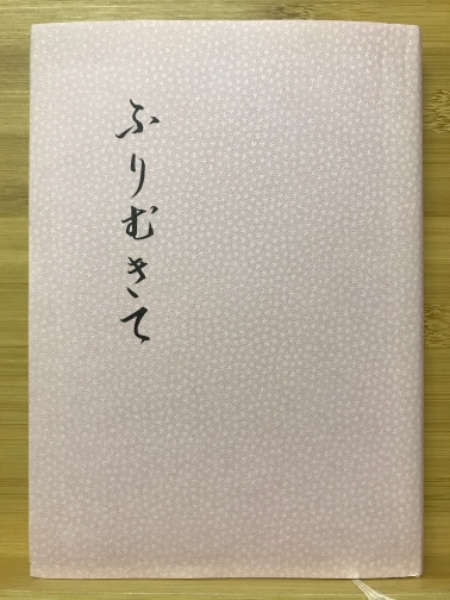 ふりむきて